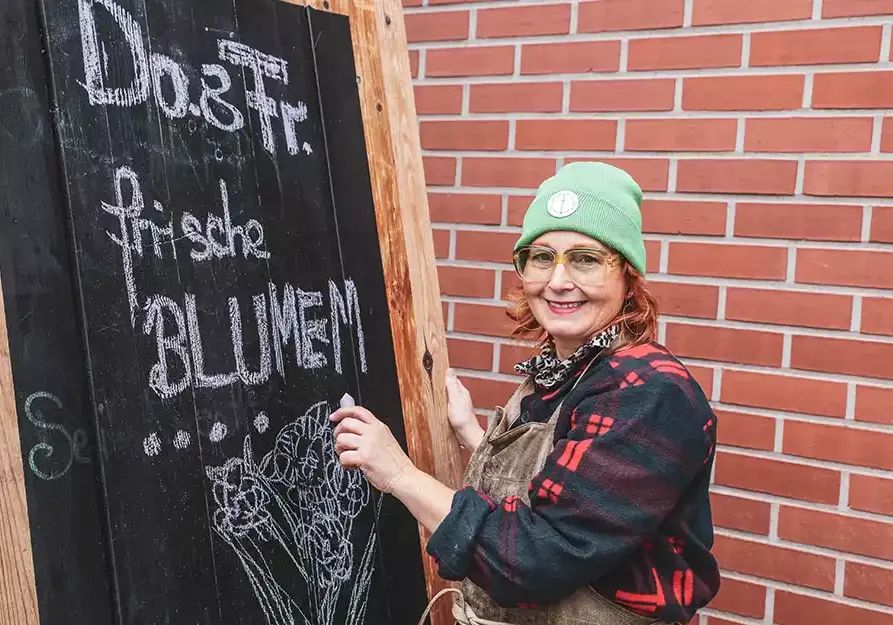 Do.&Fr.
frische
BLUMEN
....